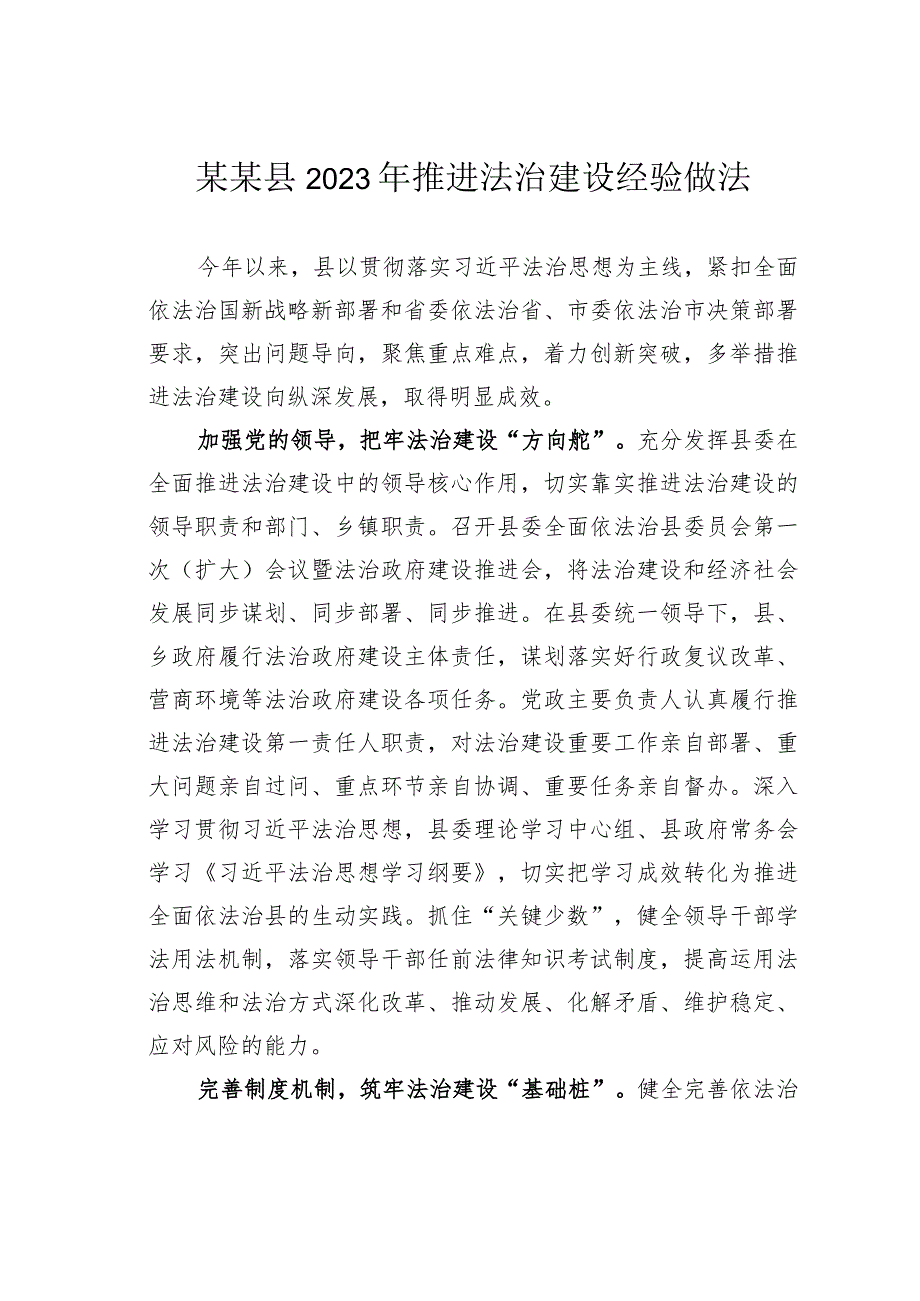 某某县2023年推进法治建设经验做法
今年以来，县以贯彻落实习近平法治思想为主线，紧扣全面
依法治国新战略新部署和省委依法治省、市委依法治市决策部署
要求，突出问题导向，聚焦重点难点，着力创新突破，多举措推
进法治建设向纵深发展，取得明显成效。
加强党的领导，把牢法治建设“方向舵”。充分发挥县委在
全面推进法治建设中的领导核心作用，切实靠实推进法治建设的
领导职责和部门、乡镇职责。召开县委全面依法治县委员会第一
次（扩大）会议暨法治政府建设推进会，将法治建设和经济社会
发展同步谋划、同步部署、同步推进。在县委统一领导下，县、
乡政府履行法治政府建设主体责任，谋划落实好行政复议改革、
营商环境等法治政府建设各项任务。党政主要负责人认真履行推
进法治建设第一责任人职责，对法治建设重要工作亲自部署、重
大问题亲自过问、重点环节亲自协调、重要任务亲自督办。深入
学习贯彻习近平法治思想，县委理论学习中心组、县政府常务会
学习《习近平法治思想学习纲要》，切实把学习成效转化为推进
全面依法治县的生动实践。抓住“关键少数”，健全领导干部学
法用法机制，落实领导干部任前法律知识考试制度，提高运用法
治思维和法治方式深化改革、推动发展、化解矛盾、维护稳定、
应对风险的能力。
完善制度机制，筑牢法治建设“基础桩”。健全完善依法治